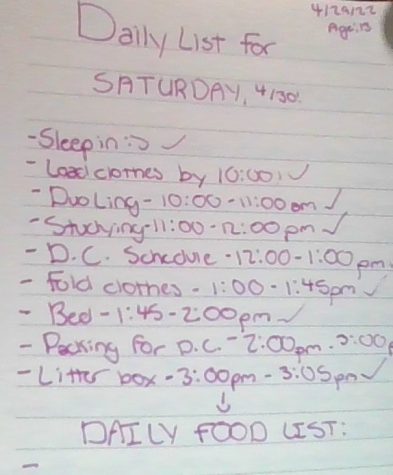 4/29/22
Age:13
Daily List for
SATURDAY, 4/30!
- Sleep in :) ✓
- Load clothes by 10:00! ✓
- DuoLing - 10:00 - 11:00am ✓
- Studying - 11:00 - 12:00pm ✓
- D.C. Schedule - 12:00 - 1:00pm
- Fold clothes - 1:00 - 1:45pm ✓
- Bed - 1:45 - 2:00pm ✓
- Packing for D.C. - 2:00pm - 3:00p
- Litter box - 3:00pm - 3:05pm ✓
↓
DAILY FOOD LIST:
-